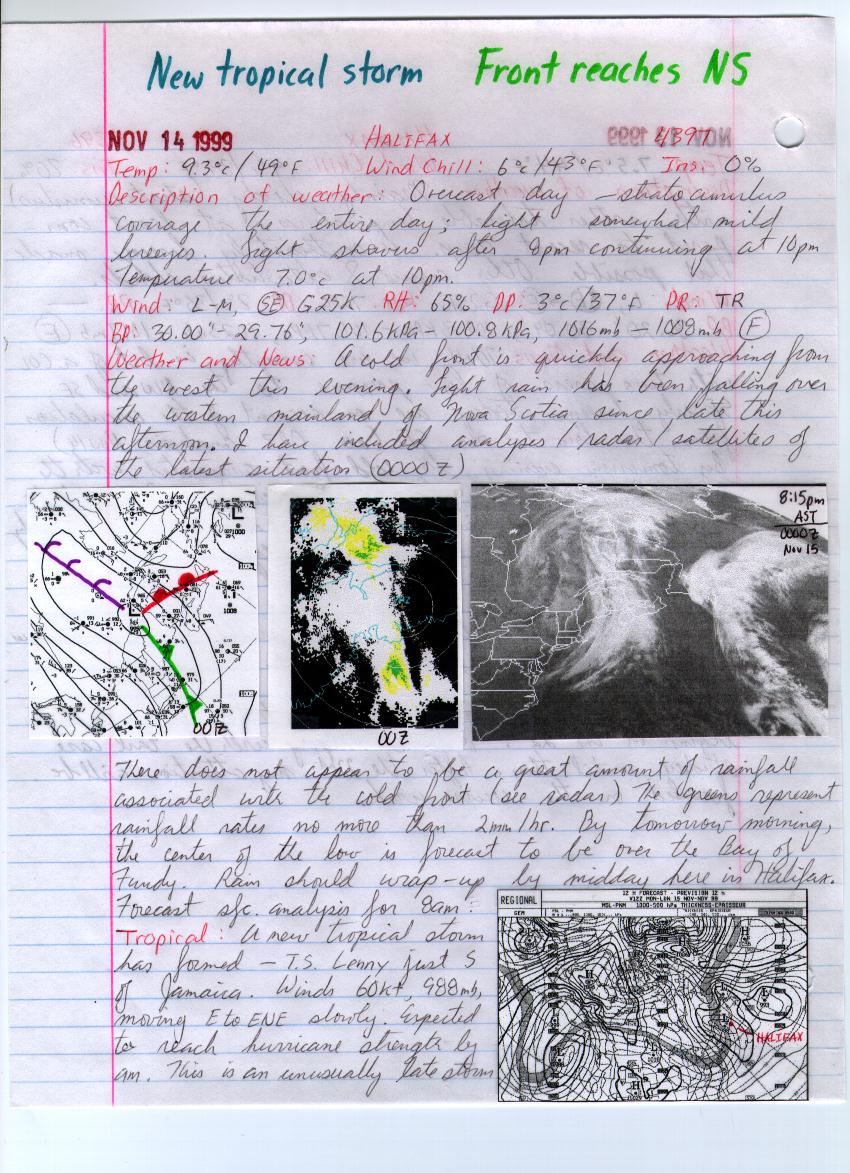 New tropical storm Front reaches NS
NOV 14 1999 HALIFAX 4397
Temp: 9.3°C/49°F Wind Chill: 6°C/43°F Ins: 0%
Description of weather: Overcast day - stratocumulus
coverage the entire day; light somewhat mild
breezes. Light showers after 8pm continuing at 10pm
Temperature 7.0°C at 10pm.
Wind: L-M, SE G25K RH: 65% DP: 3°C/37°F PR: TR
BP: 30.00"- 29.76", 101.6kPa - 100.8kPa, 1016mb - 1008mb F
Weather and News: A cold front is quickly approaching from
the west this evening. Light rain has been falling over
the western mainland of Nova Scotia since late this
afternoon. I have included analyses / radar / satellites of
the latest situation (0000Z)
8:15pm
AST
0000Z
Nov 15
00Z
00Z
There does not appear to be a great amount of rainfall
associated with the cold front (see radar) The greens represent
rainfall rates no more than 2mm/hr. By tomorrow morning,
the center of the low is forecast to be over the Bay of
Fundy. Rain should wrap-up by midday here in Halifax.
Forecast sfc. analysis for 8am:
REGIONAL
12 H FORECAST - PREVISION 12 H
V12Z MON-LUN 15 NOV-NOV 99
GEM MSL-PNM 1000-500 hPa THICKNESS-EPAISSEUR
HALIFAX
Tropical: A new tropical storm
has formed - T.S. Lenny just S
of Jamaica. Winds 60kt, 988mb,
moving E to ENE slowly. Expected
to reach hurricane strength by
am. This is an unusually late storm